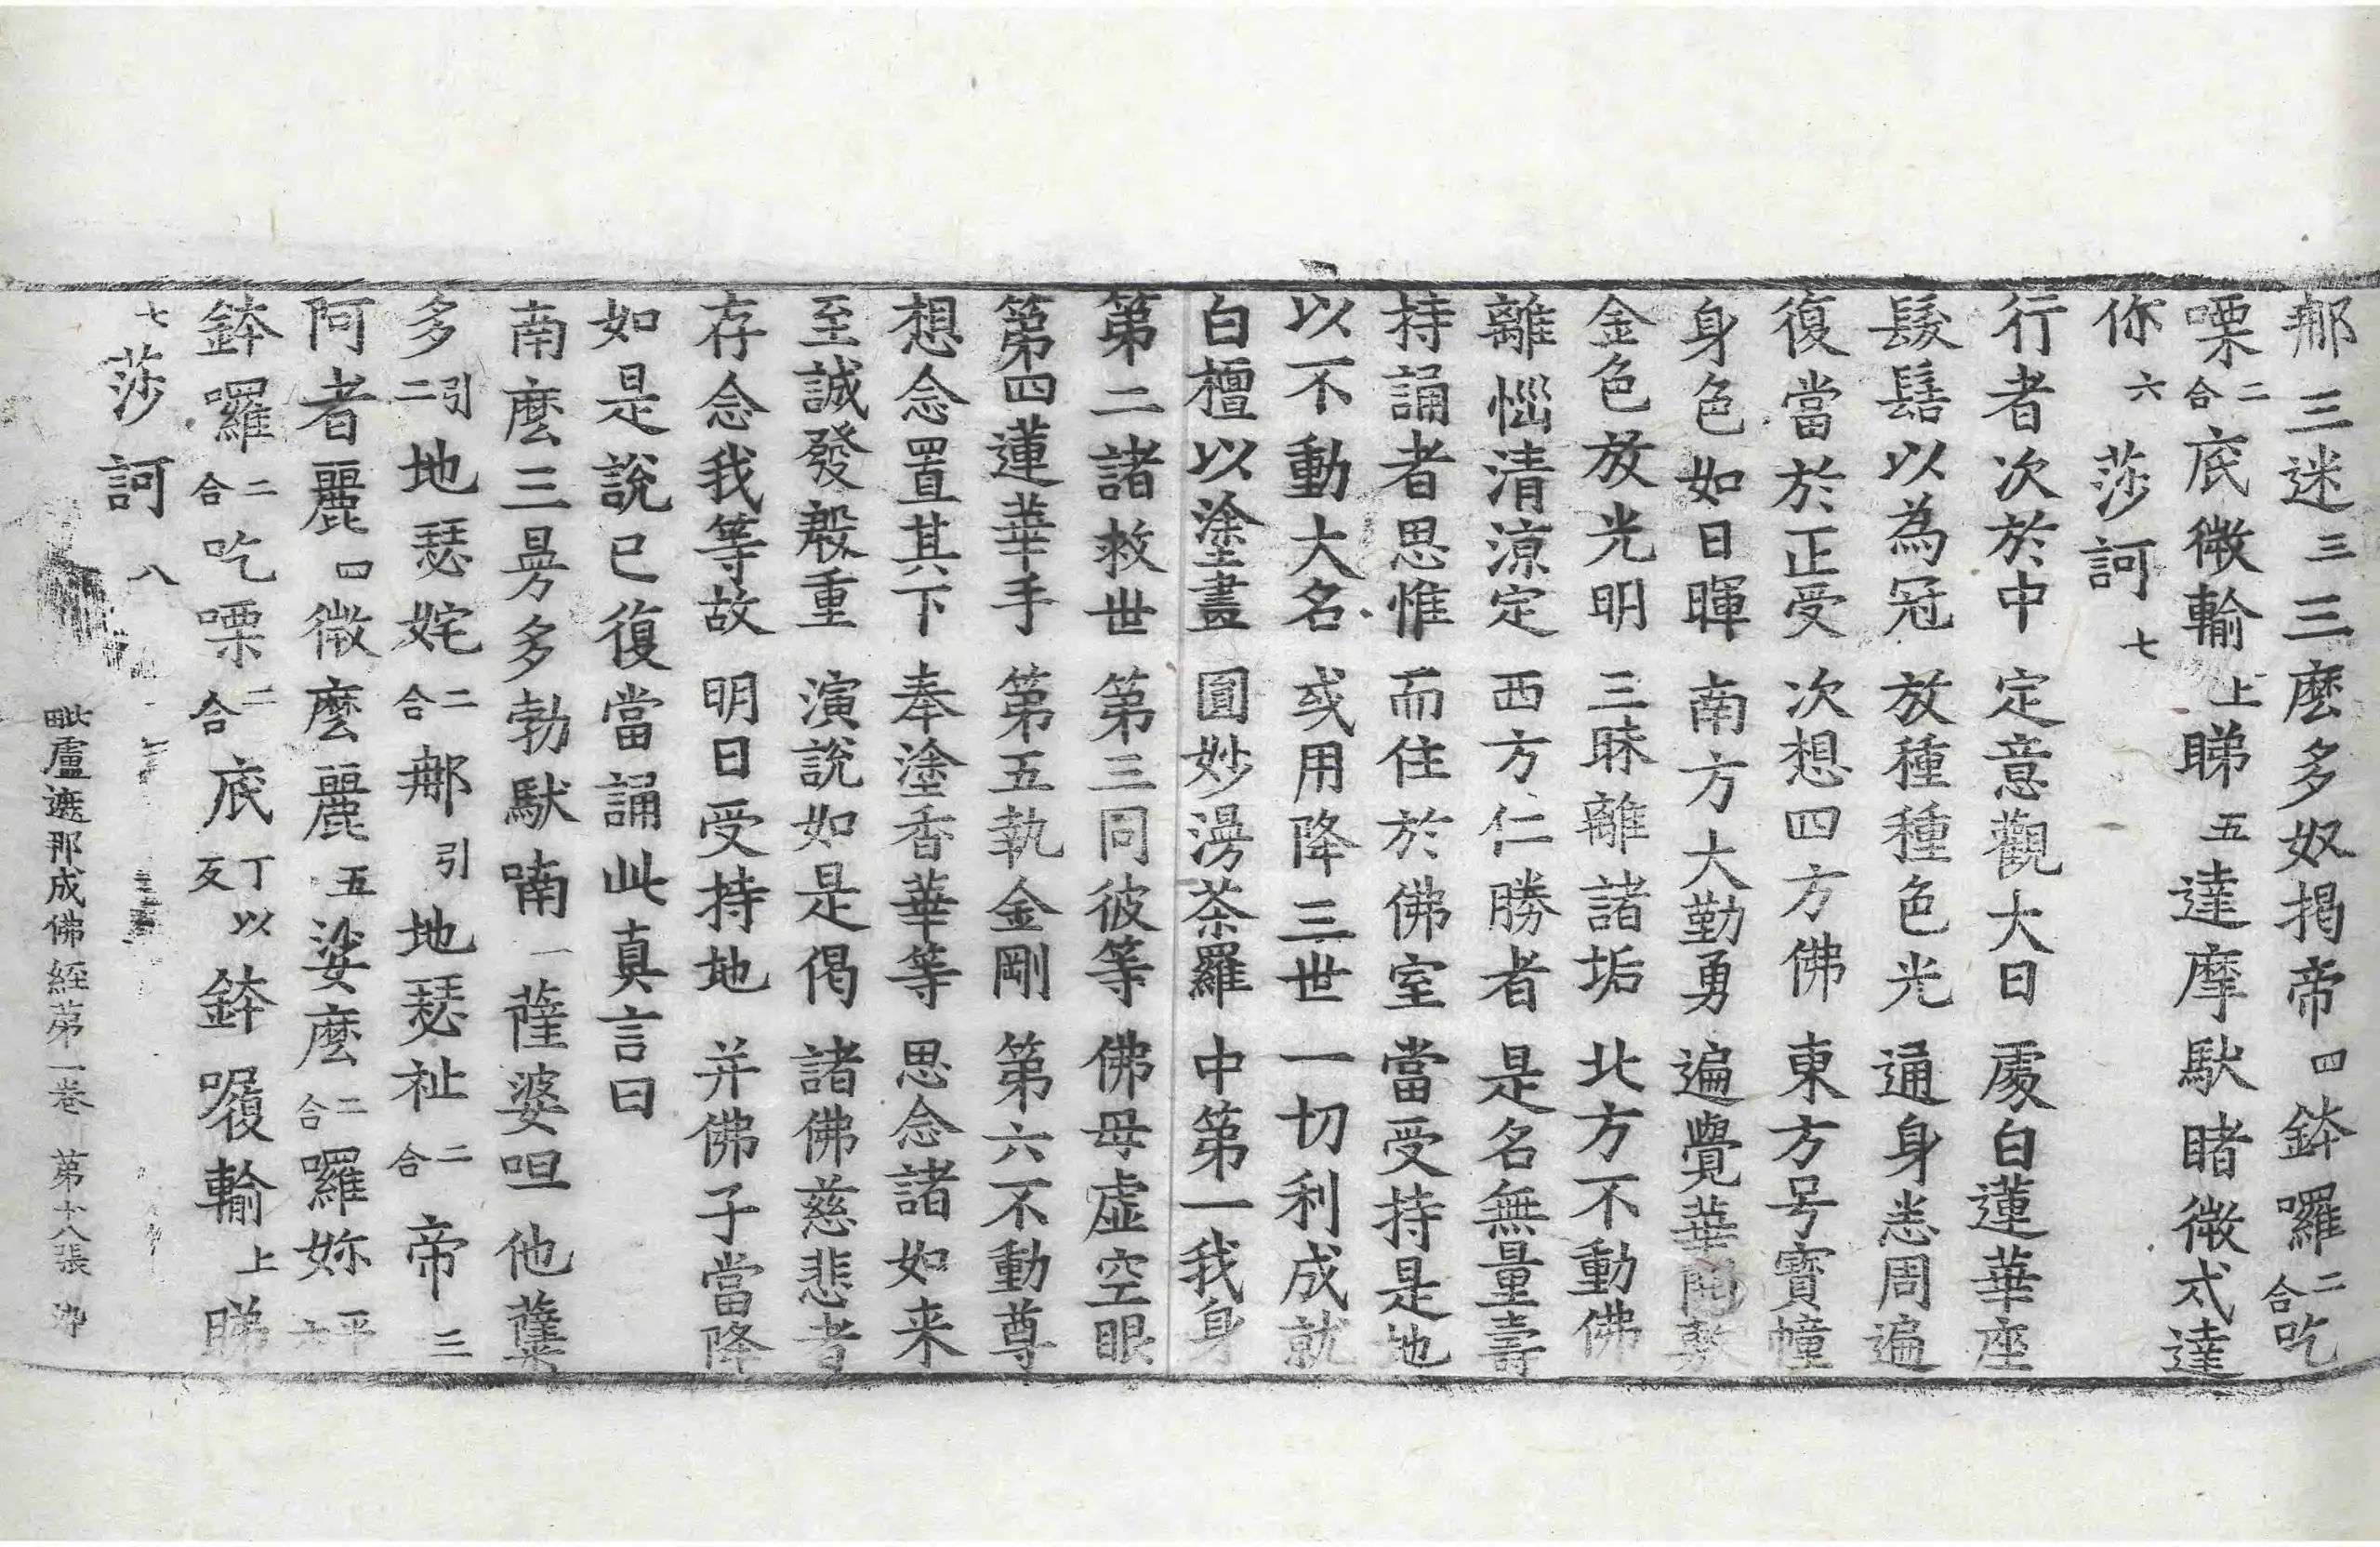 郍三迷三三麽多奴揭帝四鉢囉二合吃
㗚二合底微輸上睇五達摩䭾睹微戍達
你六莎訶七
行者次於中 定意觀大日 處白蓮華座
髮髻以為冠 放種種色光 通身悉周遍
復當於正受 次想四方佛 東方号寶幢
身色如日暉 南方大勤勇 遍覺華開敷
金色放光明 三昧離諸垢 北方不動佛
離惱清涼定 西方仁勝者 是名無量壽
持誦者思惟 而住於佛室 當受持是地
以不動大名 或用降三世 一切利成就
白檀以塗畫 圓妙漫荼羅 中第一我身
第二諸救世 第三同彼等 佛母虛空眼
第四蓮華手 第五執金剛 第六不動尊
想念置其下 奉塗香華等 思念諸如来
至誠發慇重 演說如是偈 諸佛慈悲者
存念我等故 明日受持地 并佛子當降
如是說已復當誦此真言曰
南麽三曼多勃䭾喃一薩婆呾他蘖
多引二地瑟姹二合郍引地瑟祉二合帝三
阿者麗四微麽麗五娑麽二合囉妳平六
鉢囉二合吃㗚二合底丁以反鉢囇輸上睇
七莎訶八
毗盧遮那成佛經第一卷 第十八張